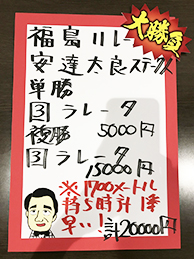 大勝負
福島11レース
安達太良ステークス
単勝
③ラレータ
5000円
複勝
③ラレータ
15000円
※1700メートル
持ち時計1番
早い!
計20000円